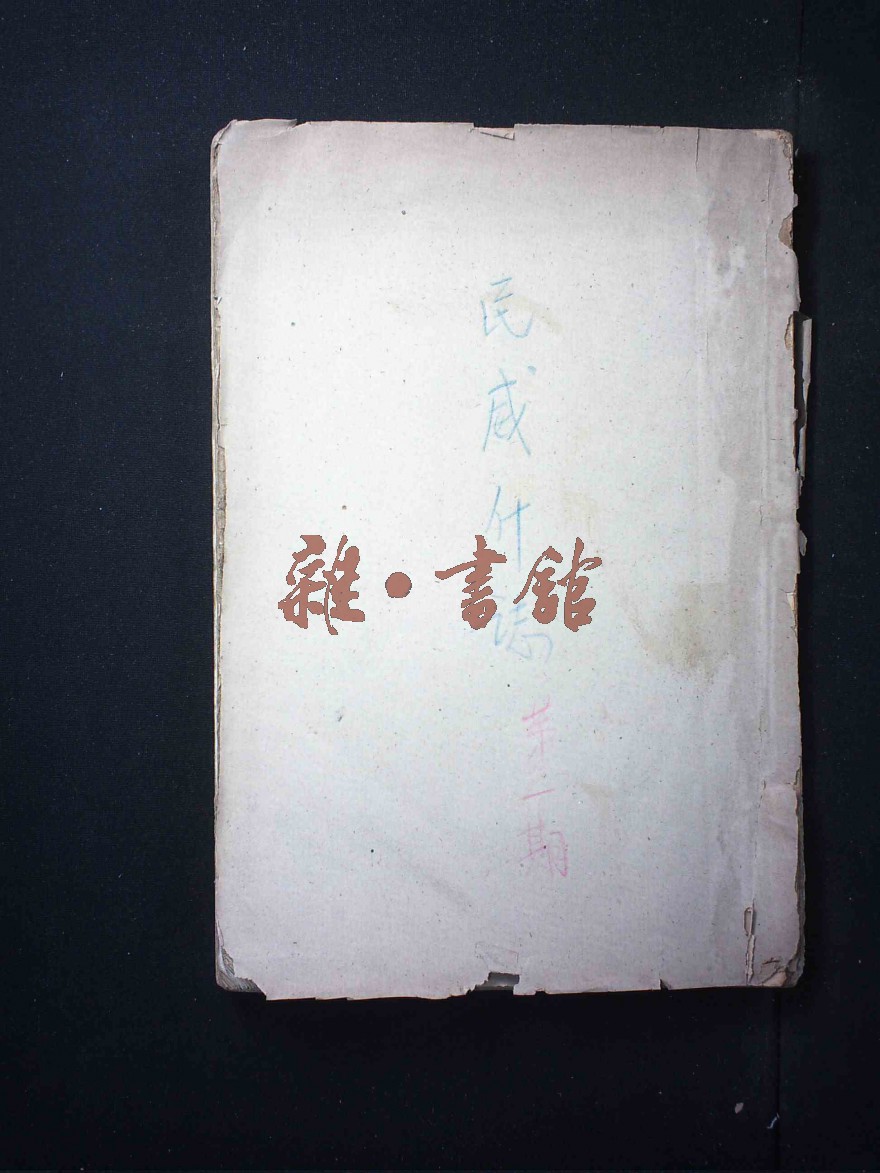 民威什誌
第二期
雜·書館